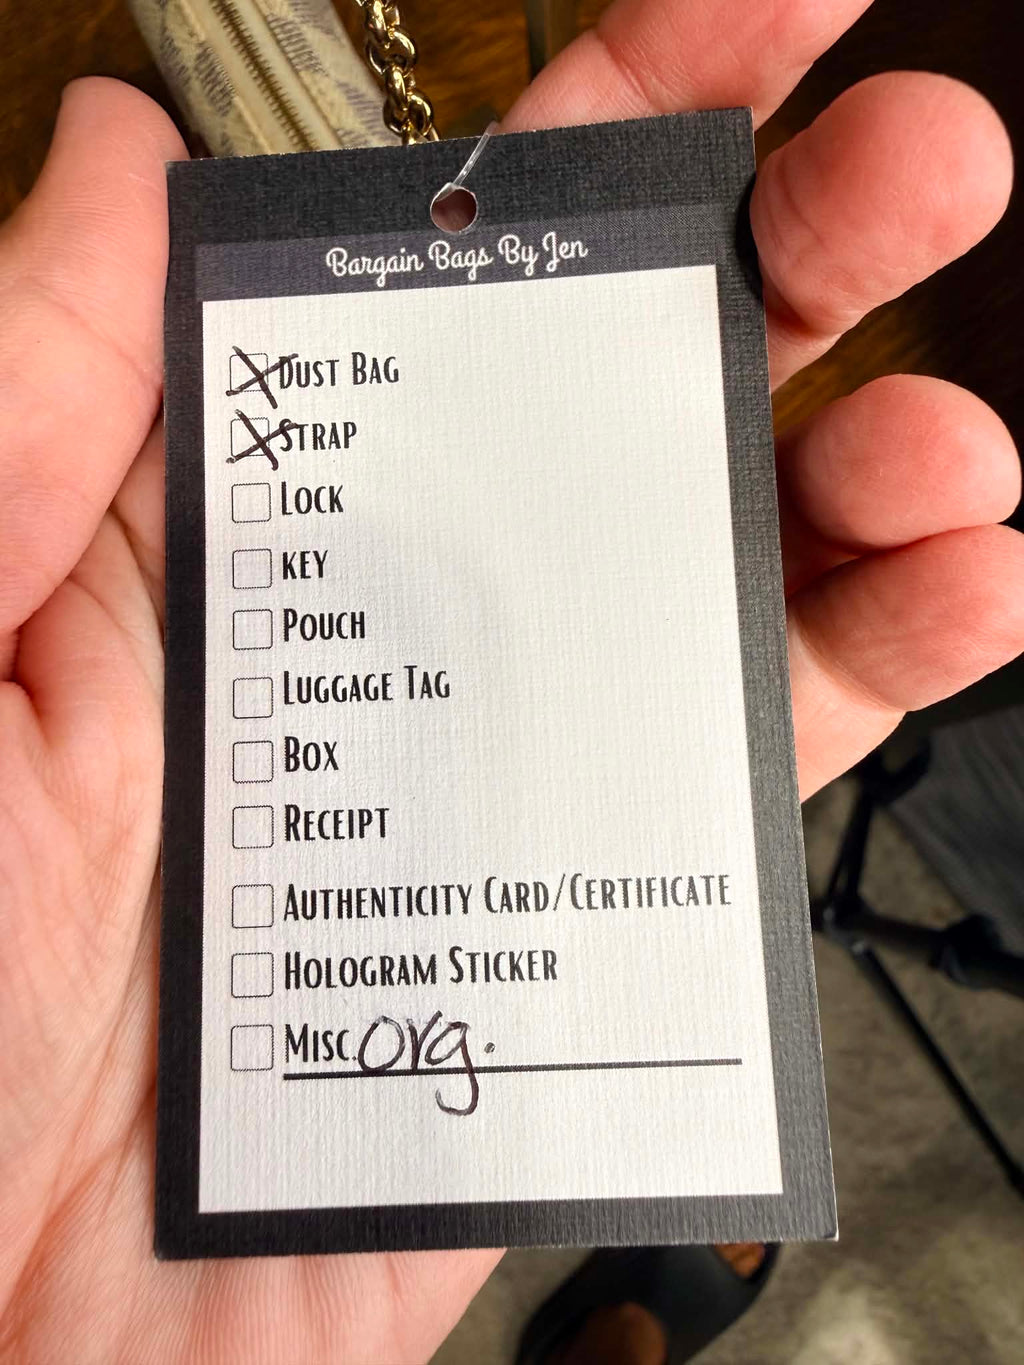 Bargain Bags By Jen
Dust Bag
Strap
Lock
Key
Pouch
Luggage Tag
Box
Receipt
Authenticity Card/Certificate
Hologram Sticker
Misc. org.